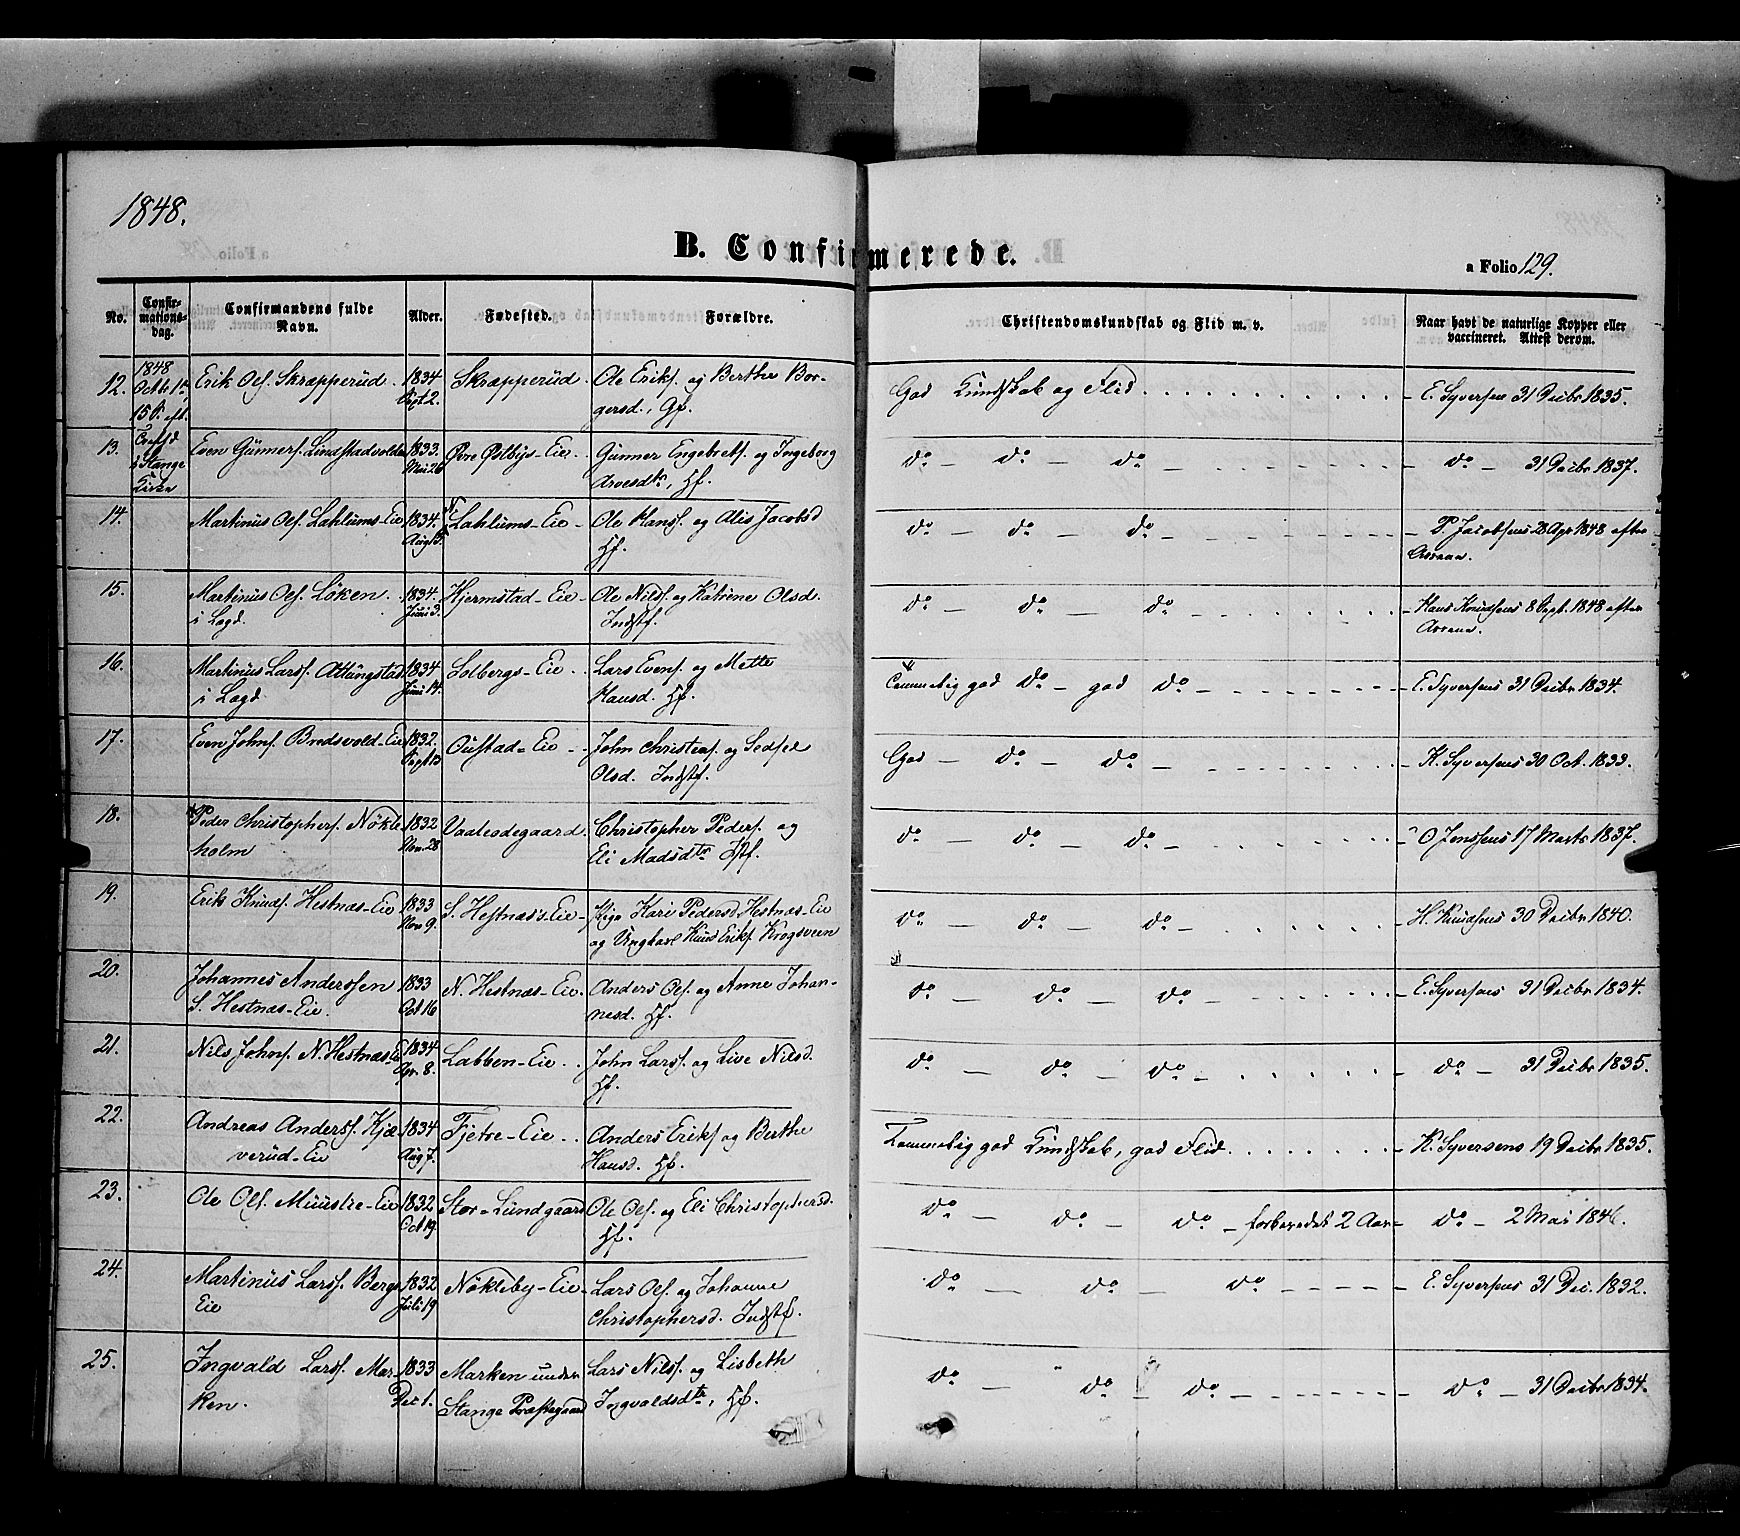 1848.
B. Confirmerede.
a Folio 129.
No.
Confir-
mations-
dag.
Confirmandens fulde
Navn.
Alder.
Fødested.
Forældre.
Christendomskundskab og Flid m. v.
Naar havt de naturlige Kopper eller
vaccineret. Attest derom.
12. 1848 Erik Ols. Skræpperud. 1834 Skræpperud. Ole Eriks. og Berthe Bor- God Kundskab og Flid E. Syversens 31 Decbr 1835.
Octb. 1ste Sept 2. gersd., Gf.
15 S. eft.
13. i Stange Even Gunners. Lindstadvolden 1833 Øvre Østbys-Eie. Gunner Engebrets. og Ingeborg do - do - do - do - 31 Decbr 1837.
Kirke Mai 26 Arvesdtr, Hf.
14. Martinus Ols. Lahlums-Eie 1834. N. Lahlums-Eie - Ole Hans. og Alis Jacobsd do - do - do - P. Jacobsens 28 Apr 1848 efter
Aug 5. Hf. Arrene.
15. Martinus Ols. Løken 1834. Hjermstad-Eie - Ole Nils. og Katrine Olsd. do - do - do - Hans Knudsens 8 Sept. 1848 efter
i Lægd. Juni 3. Indstf. Arrene.
16. Martinus Larss. Attungstad 1834 Solbergs-Eie. Lars Evens. og Mette Temmelig god do - god do - E. Syversens 31 Decbr 1834.
i Lægd Juni 14. Hansd. Hf.
17. Even Johns. Bredsvold-Eie 1832. Oustad-Eie - John Christens. og Sedsel God - do - do - K. Syversens 30 Oct. 1833.
Sept 13 Olsd. Indstf.
18. Peder Christophers. Nökle- 1832 Vaalesdegaard. Christopher Peders. og do - do - do - O Jenssens 17 Marts 1837.
holm Nov. 28 Eli Madsdtr
19. Erik Knuds. Hestnæs-Eie 1833 S. Hestnæs's-Eie - Pige Kari Pedersd Hestnæs-Eie do - do - do - H. Knudsens 30 Decbr 1840.
Nov 9. og Ungkarl Knud Eriks. Krogsveen
20. Johannes Anderssen 1833 N. Hestnæs-Eie. Anders Ols. og Anne Johan- do - do - do - E. Syversens 31 Decbr 1834.
S. Hestnæs-Eie. Oct 16 nesd. Hf.
21. Nils Johns. N. Hestnæs E. 1834 Labben-Eie. John Larss. og Live Nilsd. do - do - do - do - 31 Decbr 1835.
Apr. 8. Hf.
22. Andreas Anderss. Kjæ- 1834 Fjetre-Eie. Anders Eriks. og Berthe Temmelig god Kundskab, god Flid. K. Syversens 19 Decbr 1835.
verud-Eie Aug 7. Hansd. Hf.
23. Ole Ols. Muuslie-Eie 1832 Stor-Lundgaard Ole Ols. og Eli Christophersd. do - do - do - forberedet 2 Aar - do - 2 Mai 1846.
Oct 19 Hf.
24. Martinus Larss. Bergs 1832 Nökleby-Eie - Lars Ols. og Johanne do - do - do - E. Syversens 31 Dec. 1832.
Eie Juli 19 Christophersd. Indstf.
25. Ingvald Larss. Mar- 1833 Marken under Lars Nilss. og Lisbeth do - do - do - do - 31 Decbr 1834.
ken. Dec 1. Stange Præstegaard Ingvaldsdtr, Hf.